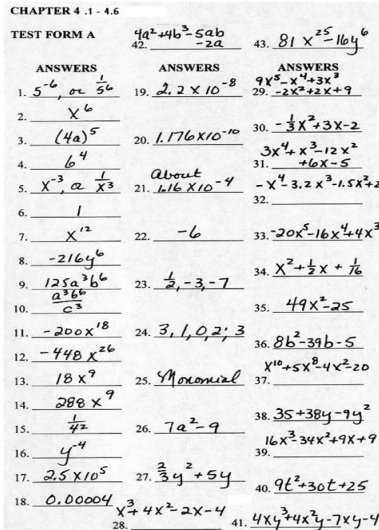 CHAPTER 4 .1 - 4.6
TEST FORM A
ANSWERS
1. 5⁻⁶, or 1/5⁶
2. x⁶
3. (4a)⁵
4. b⁴
5. x⁻³, or 1/x³
6. 1
7. x¹²
8. -216y⁶
9. 125a³b⁶
10. a³b⁶/c³
11. -200x¹⁸
12. -448x²⁶
13. 18x⁹
14. 288x⁹
15. 1/4²
16. y⁻⁴
17. 2.5x10⁵
18. 0.00004
42. 4a²+4b³-5ab-2a
ANSWERS
19. 2.2 x 10⁻⁸
20. 1.176x10⁻¹⁰
21. about 1.16 x10⁻⁴
22. -6
23. 1/2, -3, -7
24. 3, 1, 0, 2; 3
25. Monomial
26. 7a²-9
27. 2/3y²+5y
28. x³+4x²-2x-4
43. 81x²⁵-16y⁶
ANSWERS
29. 9x⁵-x⁴+3x³
-2x²+2x+9
30. -1/3x²+3x-2
31. 3x⁴+x³-12x²
+6x-5
32. -x⁴-3.2x³-1.5x²+2
33. -20x⁵-16x⁴+4x³
34. x²+1/2x+1/16
35. 49x²-25
36. 8b²-39b-5
37. x¹⁰+5x⁸-4x²-20
38. 35+38y-9y²
39. 16x³-34x²+9x+9
40. 9t²+30t+25
41. 4xy³+4x²y-7xy-4